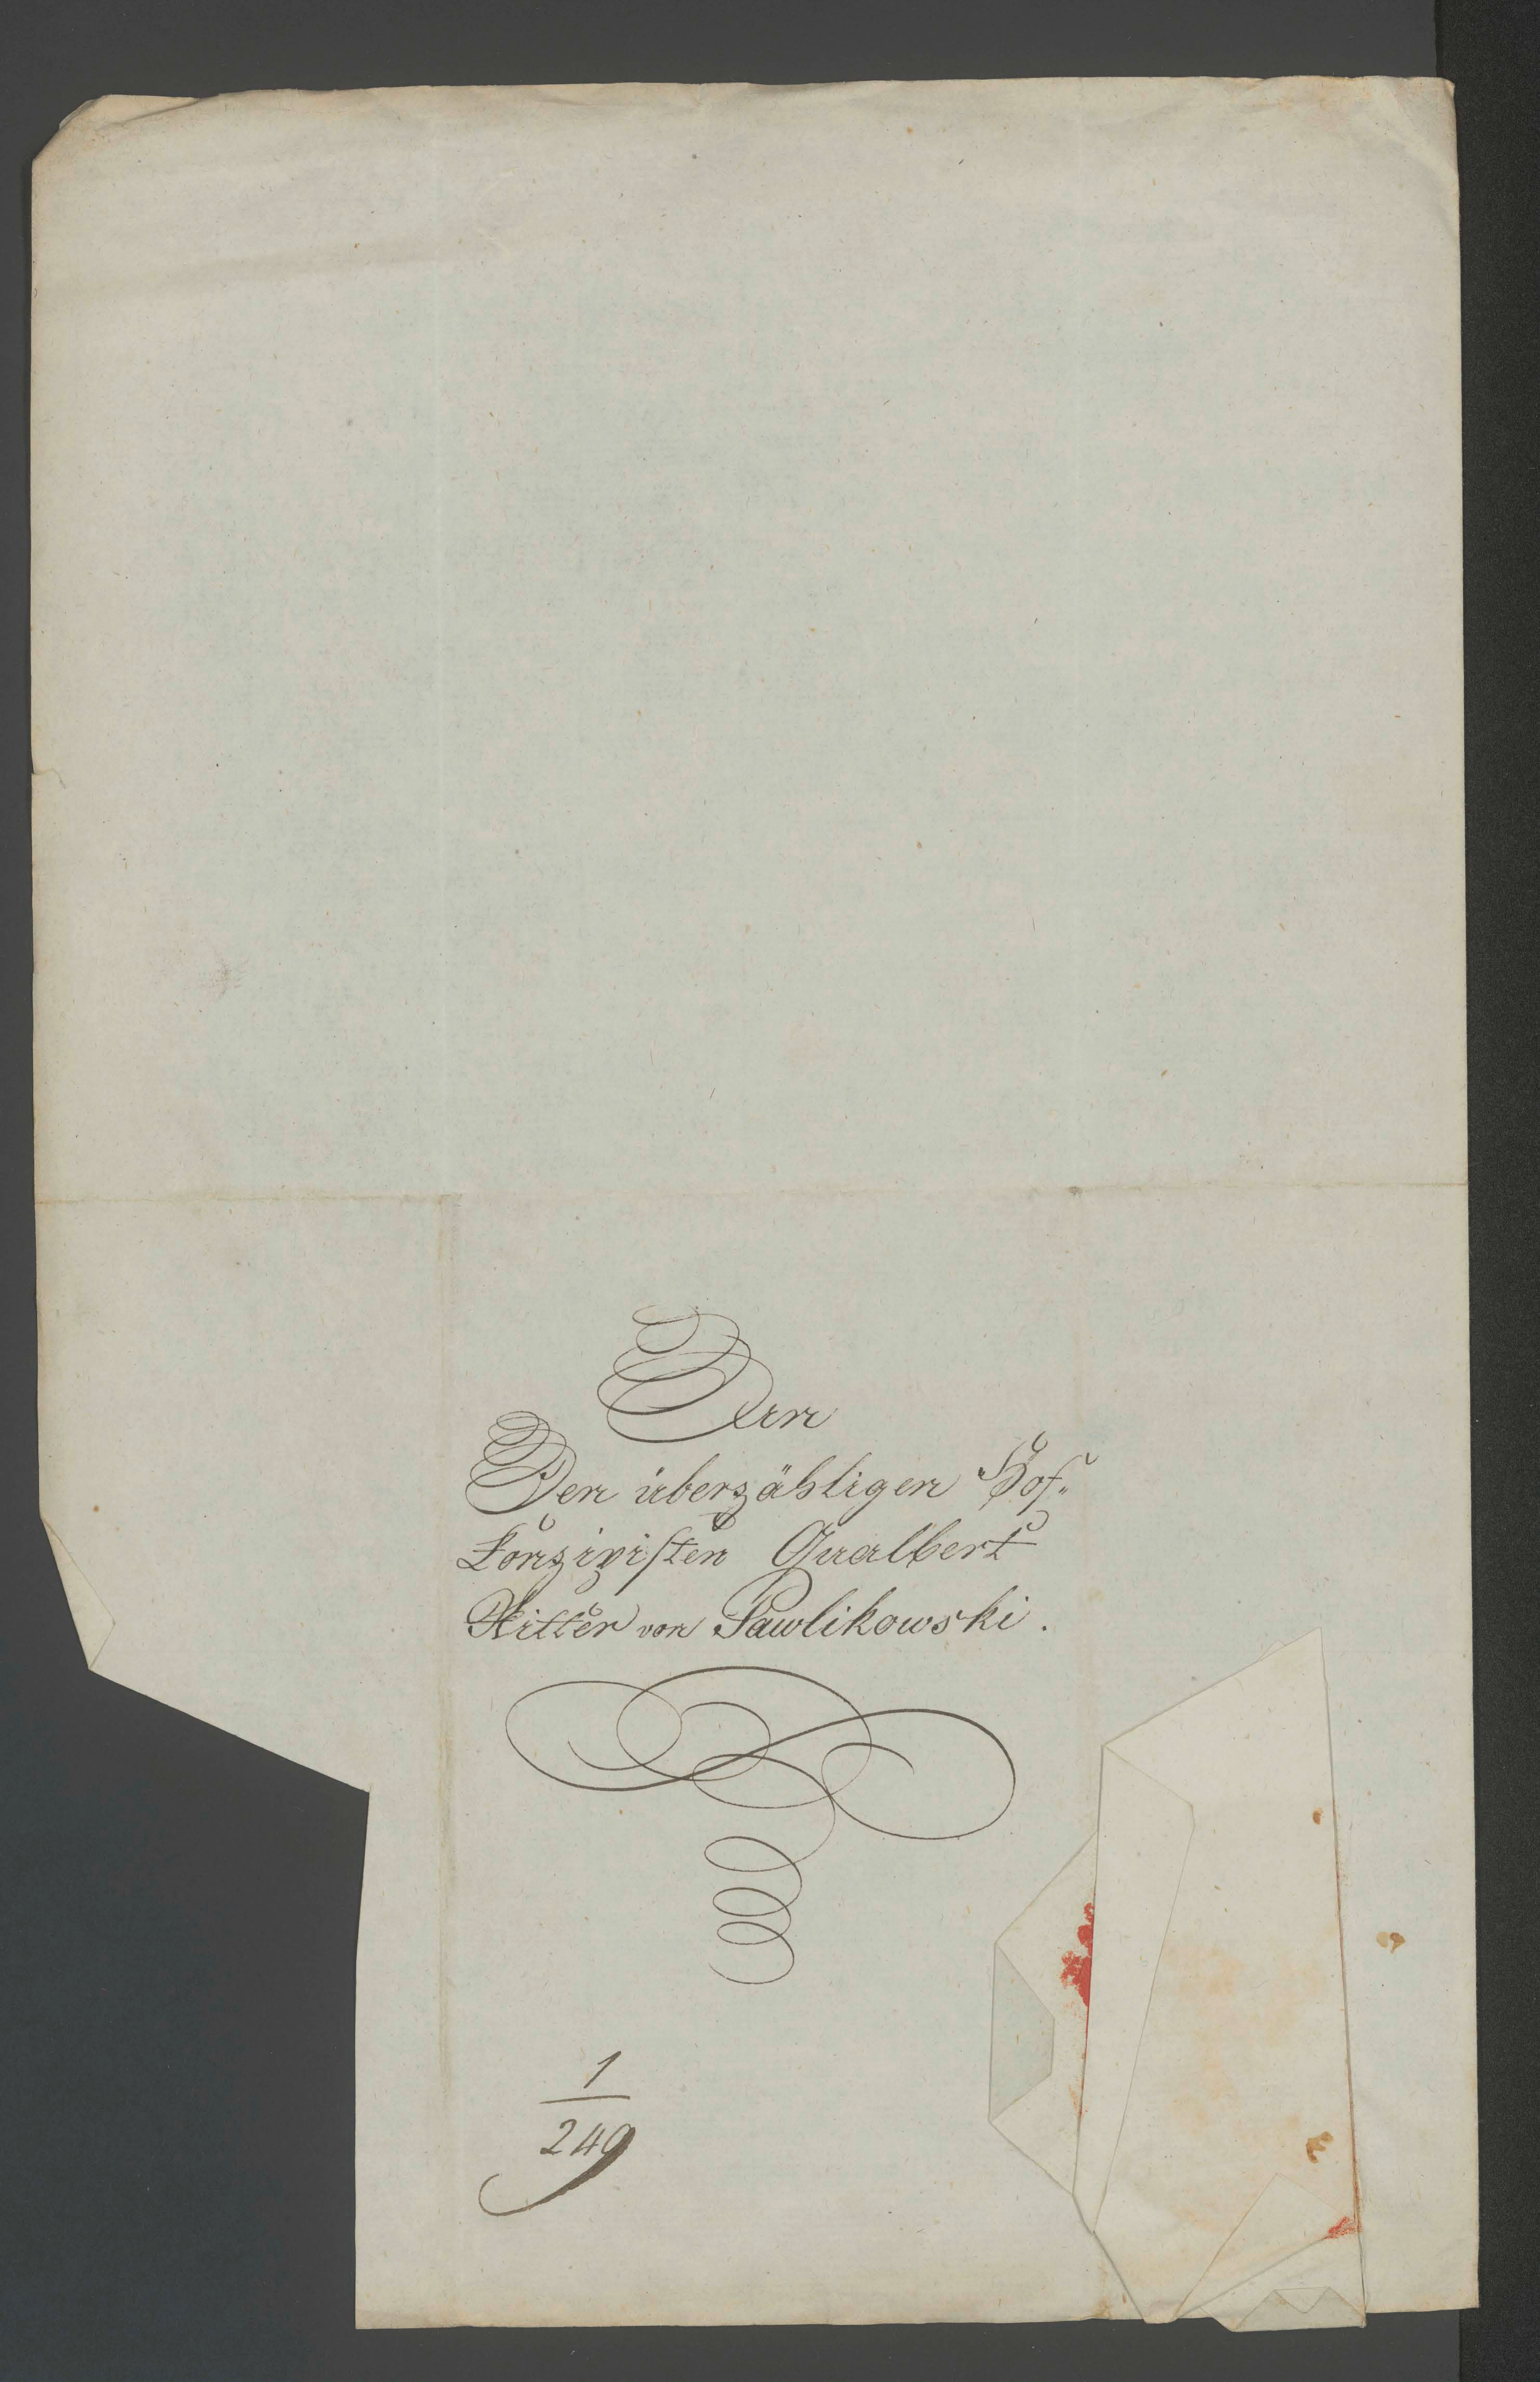 An
Den überzähligen Hof„
Konzipisten Gualbert
Ritter von Pawlikowski.
1
249